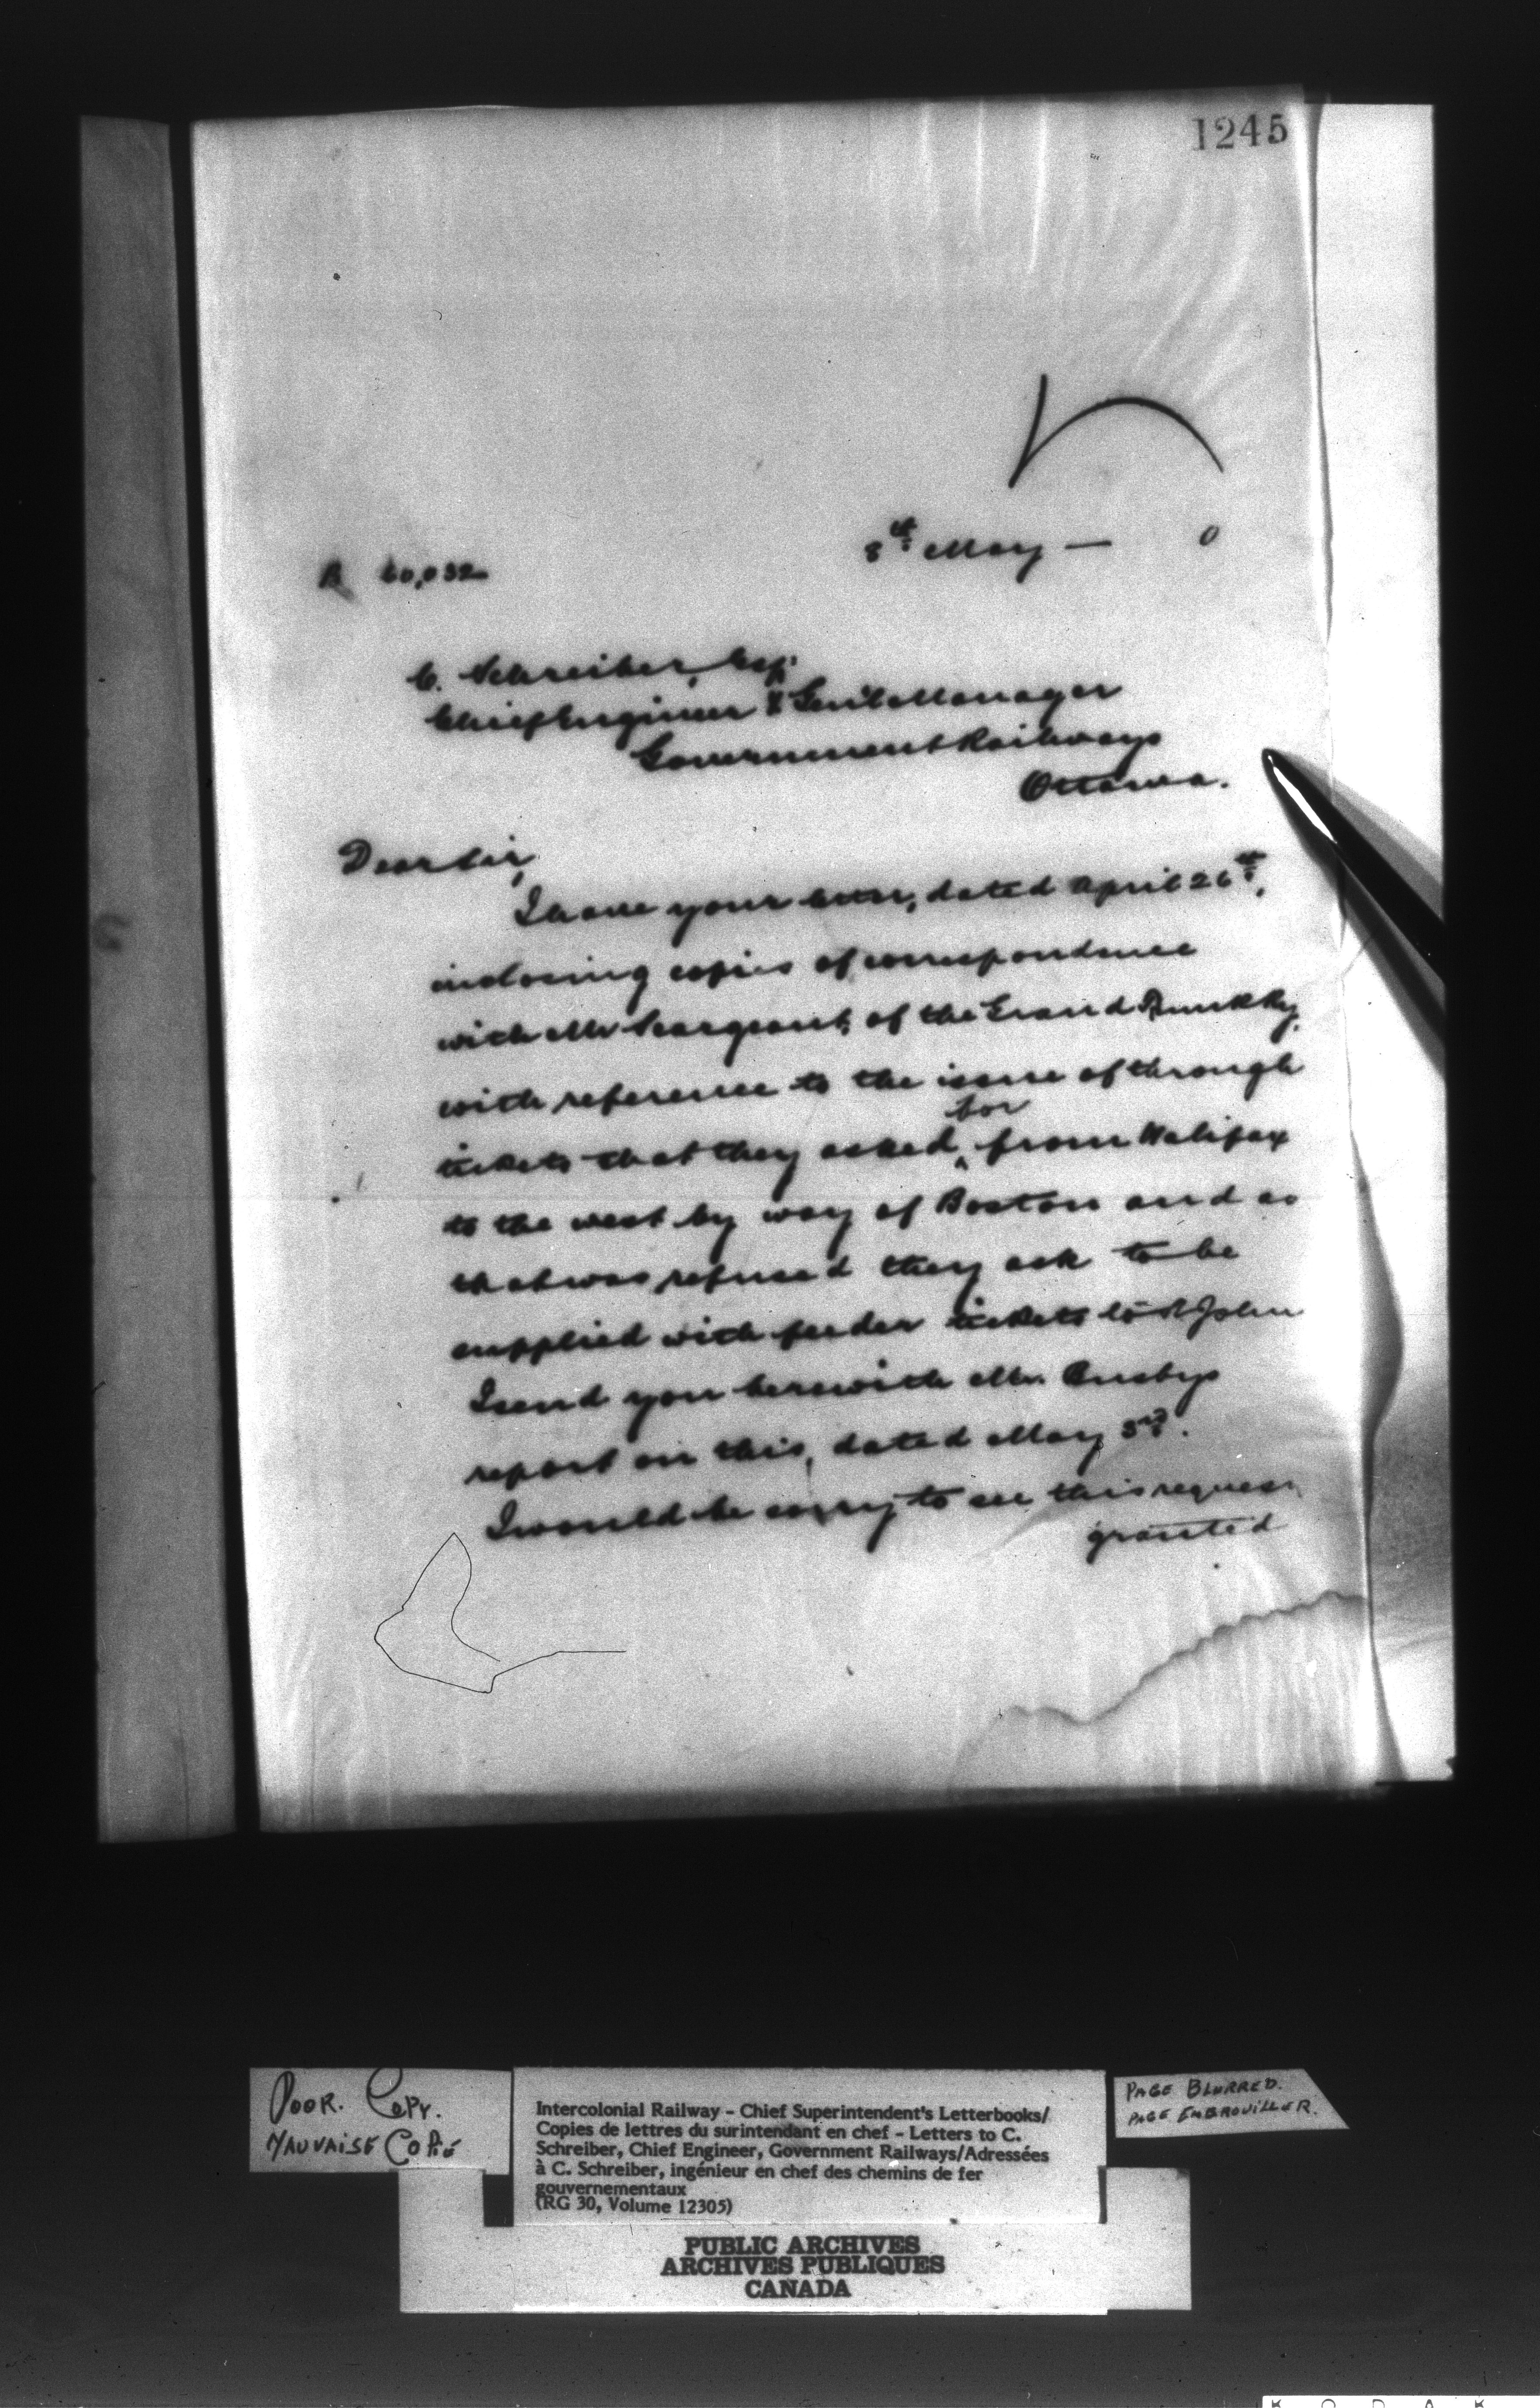 1245
8th May — 0
R 60,032
C. Schreiber, Esq.
Chief Engineer & Gen'l Manager
Government Railways
Ottawa.
Dear Sir,
I have your letter, dated April 26th,
inclosing copies of correspondence
with Mr Seargeant, of the Grand Trunk Ry,
with reference to the issue of through
for
tickets that they asked ^ from Halifax
to the west by way of Boston and as
that was refused they ask to be
supplied with feeder tickets to St John
I send you herewith Mr. Busbys
report on this, dated May 3rd.
I would be sorry to see this request
granted
POOR. COPY.
MAUVAISE COPIÉ
Intercolonial Railway – Chief Superintendent's Letterbooks/
Copies de lettres du surintendant en chef – Letters to C.
Schreiber, Chief Engineer, Government Railways/Adressées
à C. Schreiber, ingénieur en chef des chemins de fer
gouvernementaux
(RG 30, Volume 12305)
PAGE BLURRED.
PAGE EMBROUILLER.
PUBLIC ARCHIVES
ARCHIVES PUBLIQUES
CANADA